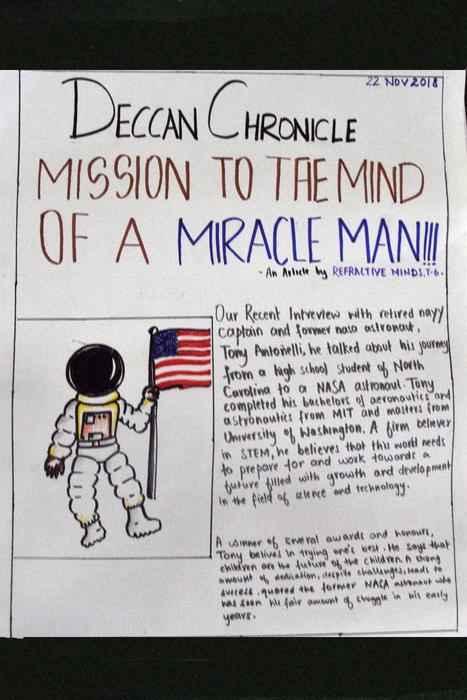 22 NOV 2018
DECCAN CHRONICLE
MISSION TO THE MIND
OF A MIRACLE MAN!!!
- An Article by REFRACTIVE MINDS.T-6.
Our Recent Intrview with retired navy
captain and former nasa astronaut,
Tony Antonelli, he talked about his journey
from a high school student of North
Carolina to a NASA astronaut. Tony
completed his bachelors of aeronautics and
astronautics from MIT and masters from
University of Washington. A firm believer
in STEM, he believes that this world needs
to prepare for and work towards a
future filled with growth and development
in the field of science and technology.
A winner of several awards and honours,
Tony belives in trying one's best. He says that
children are the future of the children. A strong
amount of dedication, despite challenges, leads to
success, quoted the former NASA astronaut who
has seen his fair amount of struggle in his early
years.